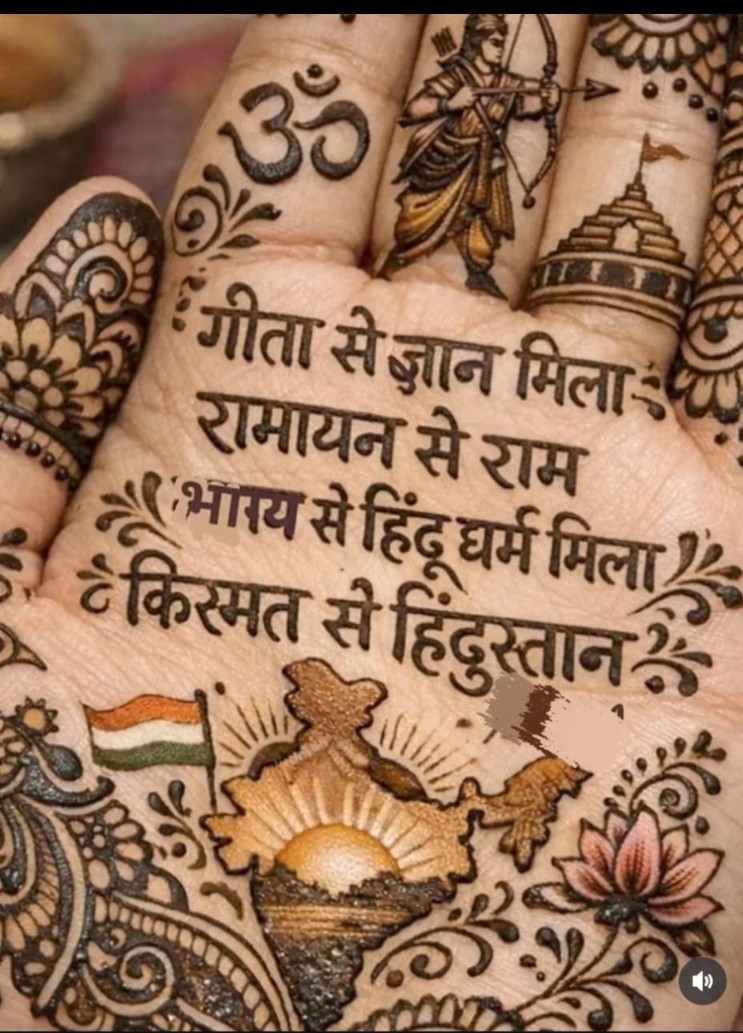 ॐ
गीता से ज्ञान मिला
रामायन से राम
भाग्य से हिंदू धर्म मिला
किस्मत से हिंदुस्तान